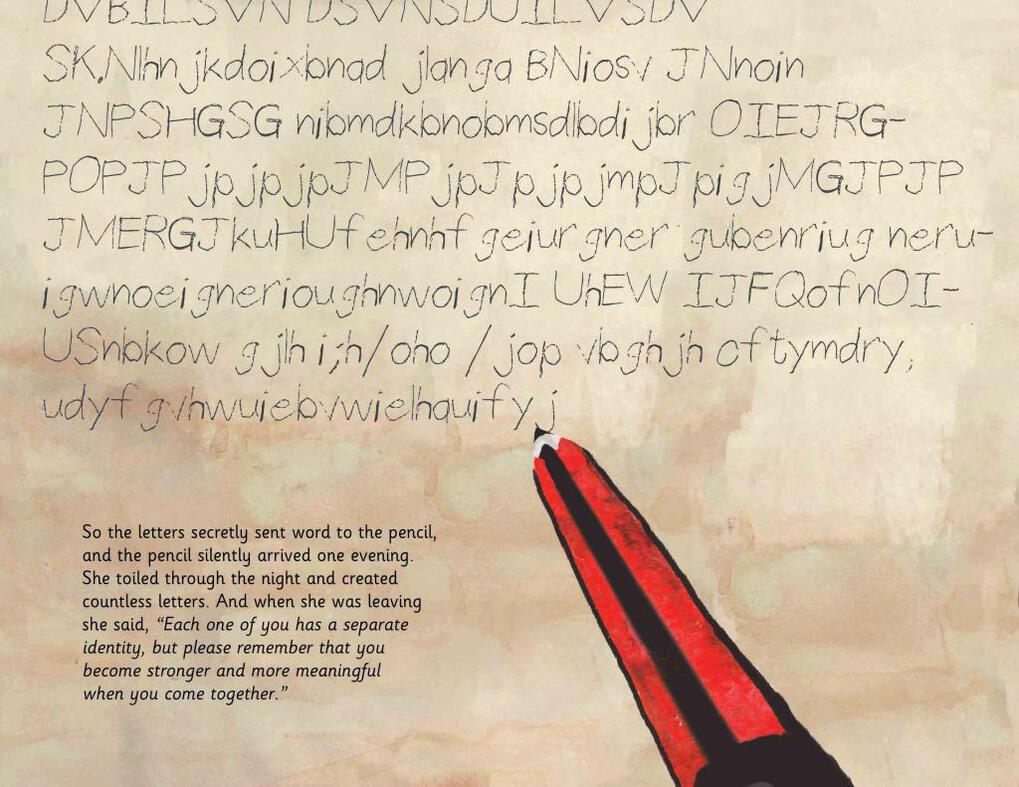 SK,Nlhn jkdoixbnad jlanga BNiosv JNnoin
JNPSHGSG nibmdkbnobmsdlbdi jbr OIEJRG-
POPJP jp jp jpJMP jpJ p jp jmpJ pig jMGJPJP
JMERGJkuHUf ehnhf geiur gner gubenriug neru-
igwnoeignerioughnwoignI UhEW IJFQofnOI-
USnbkow gjlh i;h/oho / jop vbghjh cftymdry,
udyf gvhwuiebvwielhquify j
So the letters secretly sent word to the pencil,
and the pencil silently arrived one evening.
She toiled through the night and created
countless letters. And when she was leaving
she said, “Each one of you has a separate
identity, but please remember that you
become stronger and more meaningful
when you come together.”